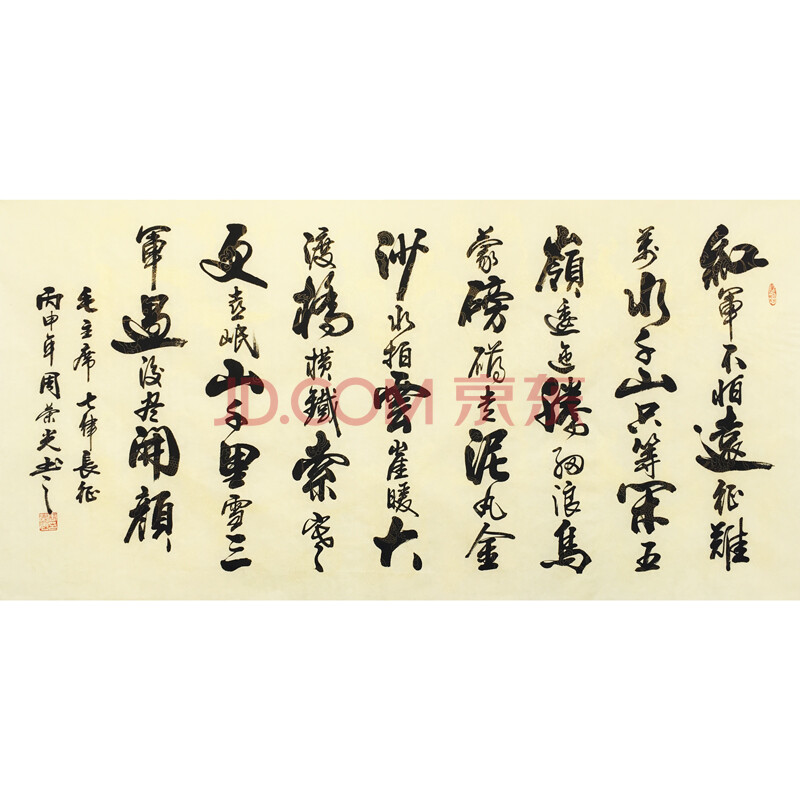 紅軍不怕遠征難
萬水千山只等閑五
嶺逶迤騰細浪烏
蒙磅礴走泥丸金
沙水拍雲崖暖大
渡橋橫鐵索寒
更喜岷山千里雪三
軍過後盡開顏
毛主席七律長征
丙申年周榮光書之
JD.COM 京东